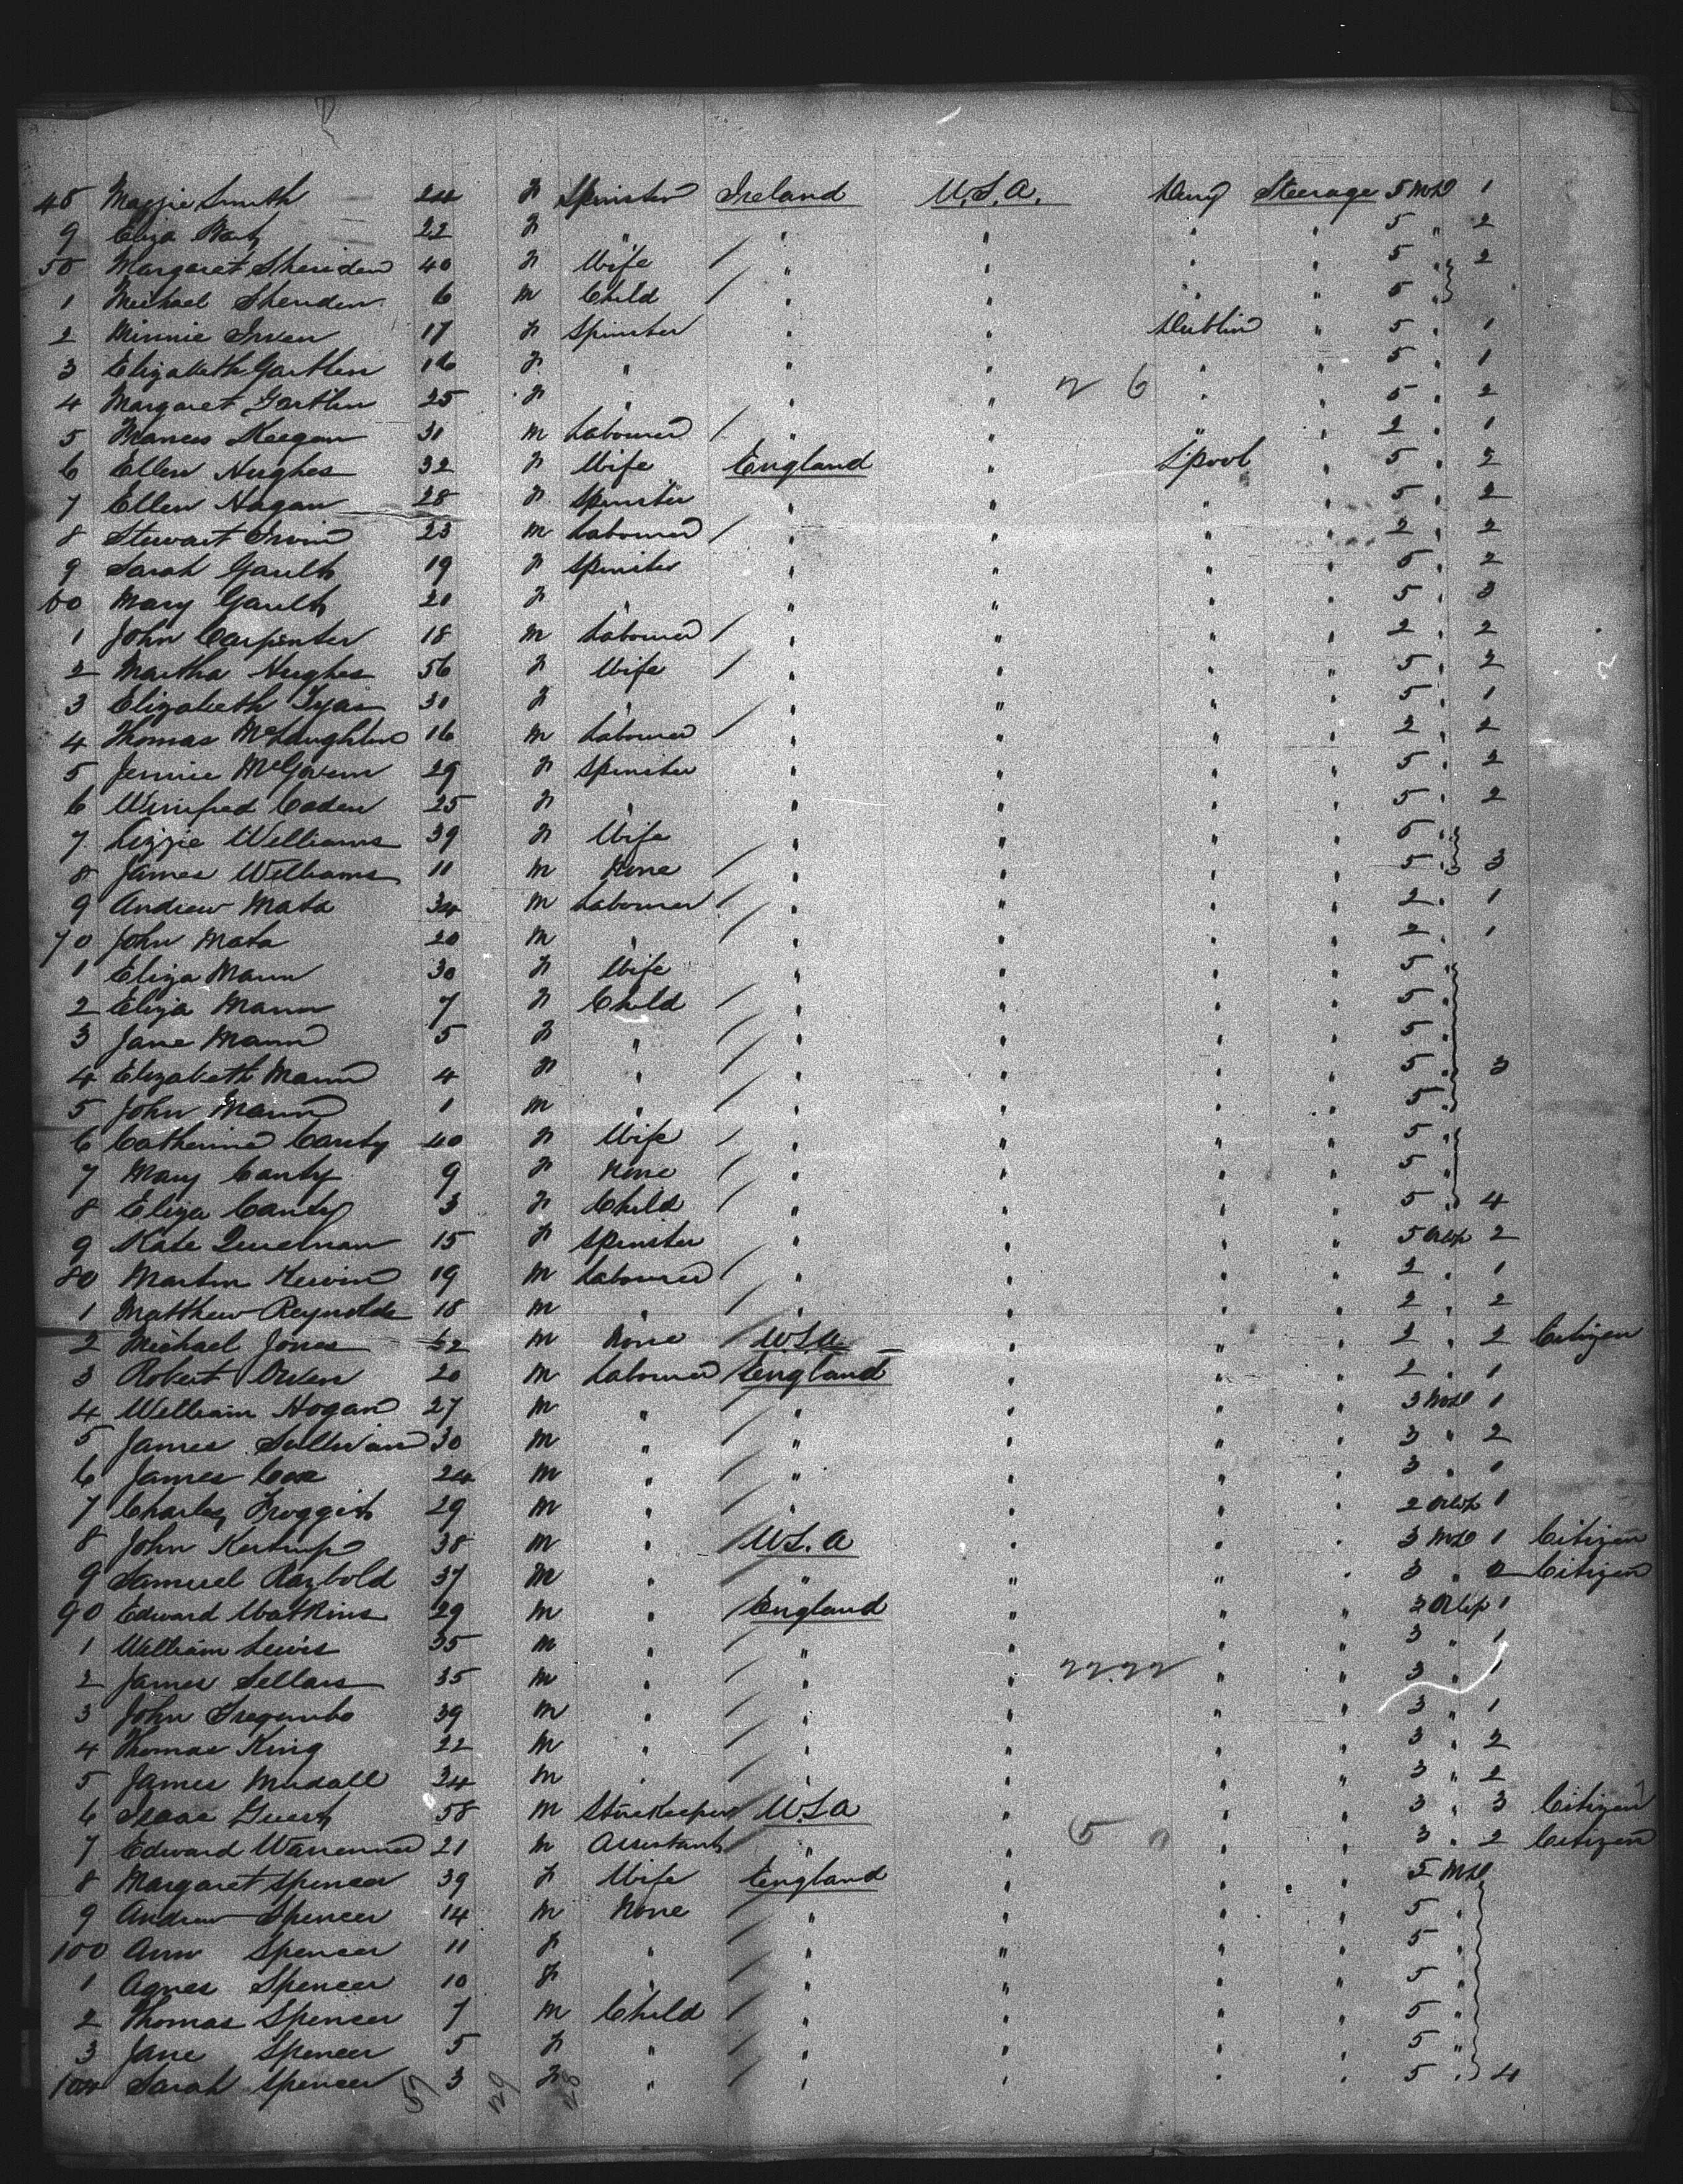 48 Maggie Smith 24 F Spinster Ireland U.S.A. Derry Steerage 5 Mdl 1
9 Eliza 22 F " " " " " 5 " 2
50 Margaret Sheridan 40 F Wife / " " " " 5 " 2
1 Michael Sheridan 6 M Child / " " " " 5 "
2 Minnie Irven 17 F Spinster " " Dublin " 5 " 1
3 Elizabeth Gartlen 16 F " " " " " 5 " 1
4 Margaret Gartlen 25 F " " " 6 " " 5 " 2
5 Frances Keegan 31 M Labourer / " " " " 2 " 1
6 Ellen Hughes 32 F Wife England " L'pool " 5 " 2
7 Ellen Hagan 28 F Spinster " " " " 5 " 2
8 Stewart Irvin 23 M Labourer / " " " " 2 " 2
9 Sarah Gault 19 F Spinster " " " " 5 " 2
60 Mary Gault 20 F " " " " " 5 " 3
1 John Carpenter 18 M Labourer / " " " " 2 " 2
2 Martha Hughes 56 F Wife / " " " " 5 " 2
3 Elizabeth Tyas 31 F " " " " " 5 " 1
4 Thomas McLaughlin 16 M Labourer / " " " " 2 " 2
5 Jennie McGovern 29 F Spinster " " " " 5 " 2
6 Winifred Caden 25 F " " " " " 5 " 2
7 Lizzie Williams 39 F Wife " " " " 5 "
8 James Williams 11 M None / " " " " 5 " 3
9 Andrew Mata 34 M Labourer / " " " " 2 " 1
70 John Mata 20 M " / " " " " 2 " 1
1 Eliza Mann 30 F Wife " " " " 5 "
2 Eliza Mann 7 F Child / " " " " 5 "
3 Jane Mann 5 F " / " " " " 5 "
4 Elizabeth Mann 4 F " / " " " " 5 " 3
5 John Mann 1 M " / " " " " 5 "
6 Catherine Canty 40 F Wife / " " " " 5 "
7 Mary Canty 9 F None / " " " " 5 "
8 Eliza Canty 3 F Child / " " " " 5 " 4
9 Kate 15 F Spinster / " " " " 5 Orlop 2
80 Martin Kerwin 19 M Labourer / " " " " 2 " 1
1 Matthew Reynolds 18 M " / " " " " 2 " 2
2 Michael Jones 62 M None / U.S.A. " " " 2 " 2 Citizen
3 Robert Owen 20 M Labourer England " " " 2 " 1
4 William Hogan 27 M " / " " " " 3 Mdl 1
5 James Sullivan 30 M " / " " " " 3 " 2
6 James Cox 24 M " / " " " " 3 " 1
7 Charles Froggit 29 M " / " " " " 2 Orlop 1
8 John 38 M " U.S.A " " " 3 Mdl 1 Citizen
9 Samuel Raybold 37 M " " " " " 3 " 2 Citizen
90 Edward Watkins 29 M " / England " " " 3 Orlop 1
1 William Lewis 35 M " / " " " " 3 " 1
2 James Sellars 35 M " / " " " " 3 " 1
3 John Tregembo 39 M " / " " " " 3 " 1
4 Thomas King 22 M " / " " " " 3 " 2
5 James Mudall 24 M " / " " " " 3 " 2
6 Isaac Guest 58 M Storekeeper U.S.A " " " 3 " 3 Citizen
7 Edward 21 M Assistant " " " " 3 " 2 Citizen
8 Margaret Spencer 39 F Wife England " " " 5 Mdl
9 Andrew Spencer 14 M None / " " " " 5 "
100 Ann Spencer 11 F " / " " " " 5 "
1 Agnes Spencer 10 F " / " " " " 5 "
2 Thomas Spencer 7 M Child / " " " " 5 "
3 Jane Spencer 5 F " / " " " " 5 "
104 Sarah Spencer 3 F " / " " " " 5 " 4